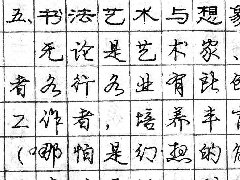 五、书法艺术与想象
无论是艺术家、
者各行各业有
工作者，培养丰富
（哪怕是幻想的